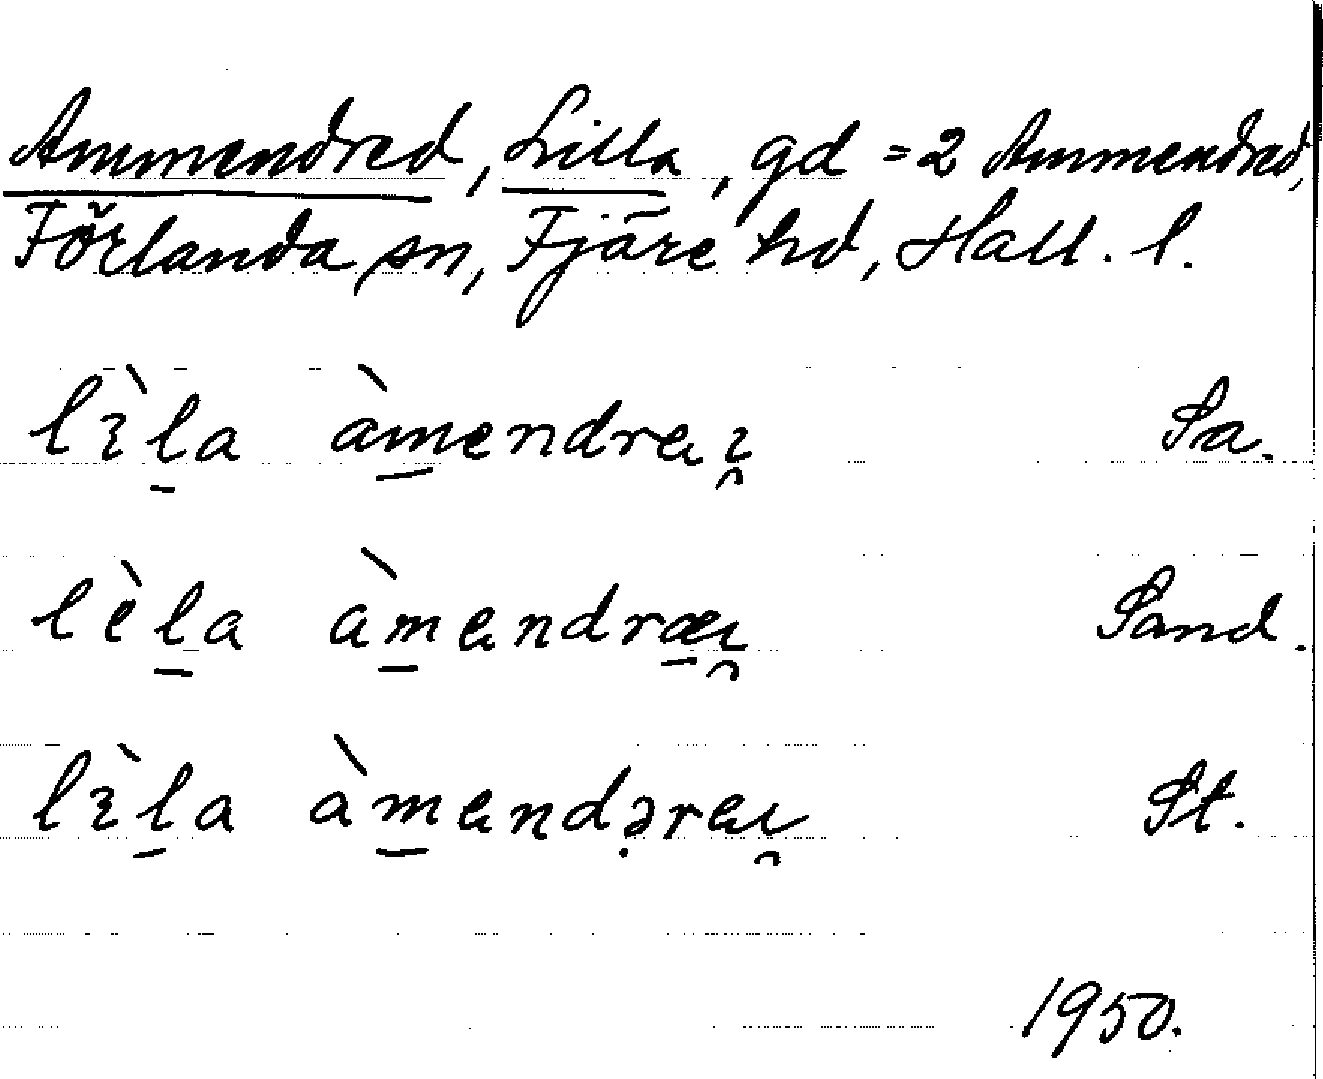 Ammendred, Lilla, gd = 2 Ammendred,
Förlanda sn, Fjäre hd, Hall. l.
lìla àmendreı Sa.
lèla àmendræı Sand.
lìla àmendəreı St.
1950.